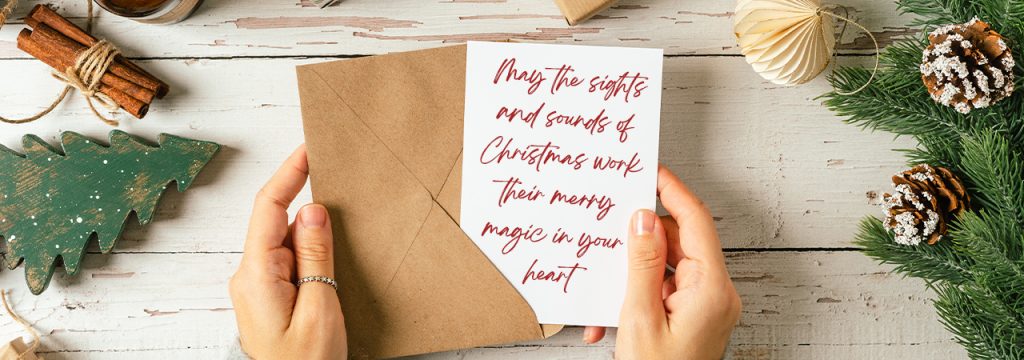 May the sights
and sounds of
Christmas work
their merry
magic in your
heart